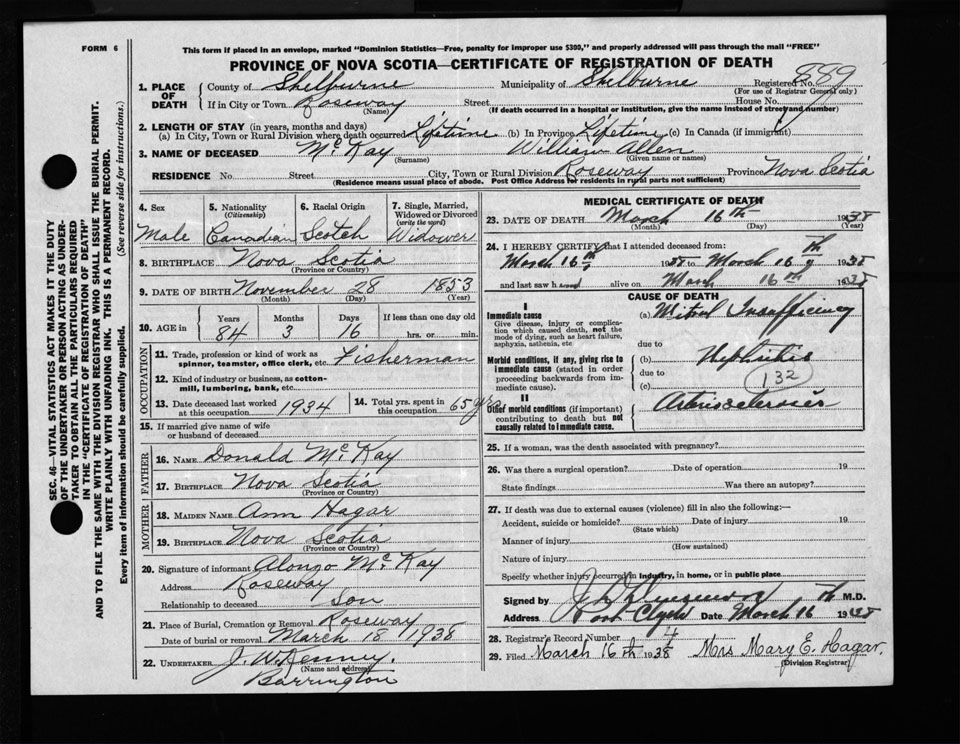 FORM 6
This form if placed in an envelope, marked "Dominion Statistics—Free, penalty for improper use $300," and properly addressed will pass through the mail "FREE"
PROVINCE OF NOVA SCOTIA—CERTIFICATE OF REGISTRATION OF DEATH
SEC. 46—VITAL STATISTICS ACT MAKES IT THE DUTY
OF THE UNDERTAKER OR PERSON ACTING AS UNDER-
TAKER TO OBTAIN ALL THE PARTICULARS REQUIRED
IN THE "CERTIFICATE OF REGISTRATION OF DEATH"
AND TO FILE THE SAME WITH THE DIVISION REGISTRAR WHO SHALL ISSUE THE BURIAL PERMIT.
WRITE PLAINLY WITH UNFADING INK. THIS IS A PERMANENT RECORD.
Every item of information should be carefully supplied. (See reverse side for instructions.)
1. PLACE OF DEATH
County of Shelburne Municipality of Shelburne Registered No. 889
(For use of Registrar General only)
If in City or Town Roseway Street House No.
(Name) (If death occurred in a hospital or institution, give the name instead of street and number)
2. LENGTH OF STAY (in years, months and days)
(a) In City, Town or Rural Division where death occurred Lifetime (b) In Province Lifetime (c) In Canada (if immigrant)
3. NAME OF DECEASED McKay William Allen
(Surname) (Given name or names)
RESIDENCE No. Street City, Town or Rural Division Roseway Province Nova Scotia
(Residence means usual place of abode. Post Office Address for residents in rural parts not sufficient)
4. Sex
Male
5. Nationality
(Citizenship)
Canadian
6. Racial Origin
Scotch
7. Single, Married,
Widowed or Divorced
(write the word)
Widower
8. BIRTHPLACE Nova Scotia
(Province or Country)
9. DATE OF BIRTH November 28 1853
(Month) (Day) (Year)
10. AGE in
Years Months Days If less than one day old
84 3 16 hrs. or min.
OCCUPATION
11. Trade, profession or kind of work as
spinner, teamster, office clerk, etc. Fisherman
12. Kind of industry or business, as cotton-
mill, lumbering, bank, etc.
13. Date deceased last worked
at this occupation 1934
14. Total yrs. spent in
this occupation 65 yrs
15. If married give name of wife
or husband of deceased
FATHER
16. NAME Donald McKay
17. BIRTHPLACE Nova Scotia
(Province or Country)
MOTHER
18. MAIDEN NAME Ann Hagar
19. BIRTHPLACE Nova Scotia
(Province or Country)
20. Signature of informant Alonzo McKay
Address Roseway
Relationship to deceased Son
21. Place of Burial, Cremation or Removal Roseway
Date of burial or removal March 18 / 1938
22. UNDERTAKER J. W. Kenney.
(Name and address)
Barrington
MEDICAL CERTIFICATE OF DEATH
23. DATE OF DEATH March 16th 1938
(Month) (Day) (Year)
24. I HEREBY CERTIFY that I attended deceased from:
March 16th 1938 to March 16th 1938
and last saw h alive on March 16th 1938
CAUSE OF DEATH
I
Immediate cause
Give disease, injury or complica-
tion which caused death, not the
mode of dying, such as heart failure,
asphyxia, asthenia, etc
(a) Mitral Insufficiency
due to
Morbid conditions, if any, giving rise to
immediate cause (stated in order
proceeding backwards from im-
mediate cause).
(b) Nephritis
due to
(c) 132
II
Other morbid conditions (if important)
contributing to death but not
causally related to immediate cause.
Arteriosclerosis
25. If a woman, was the death associated with pregnancy?
26. Was there a surgical operation? Date of operation 19
State findings Was there an autopsy?
27. If death was due to external causes (violence) fill in also the following:—
Accident, suicide or homicide? Date of injury 19
(State which)
Manner of injury
(How sustained)
Nature of injury
Specify whether injury occurred in industry, in home, or in public place
Signed by M.D.
Address Port Clyde Date March 16th 1938
28. Registrar's Record Number 4
29. Filed March 16th 1938 Mrs Mary E. Hagar.
(Division Registrar)